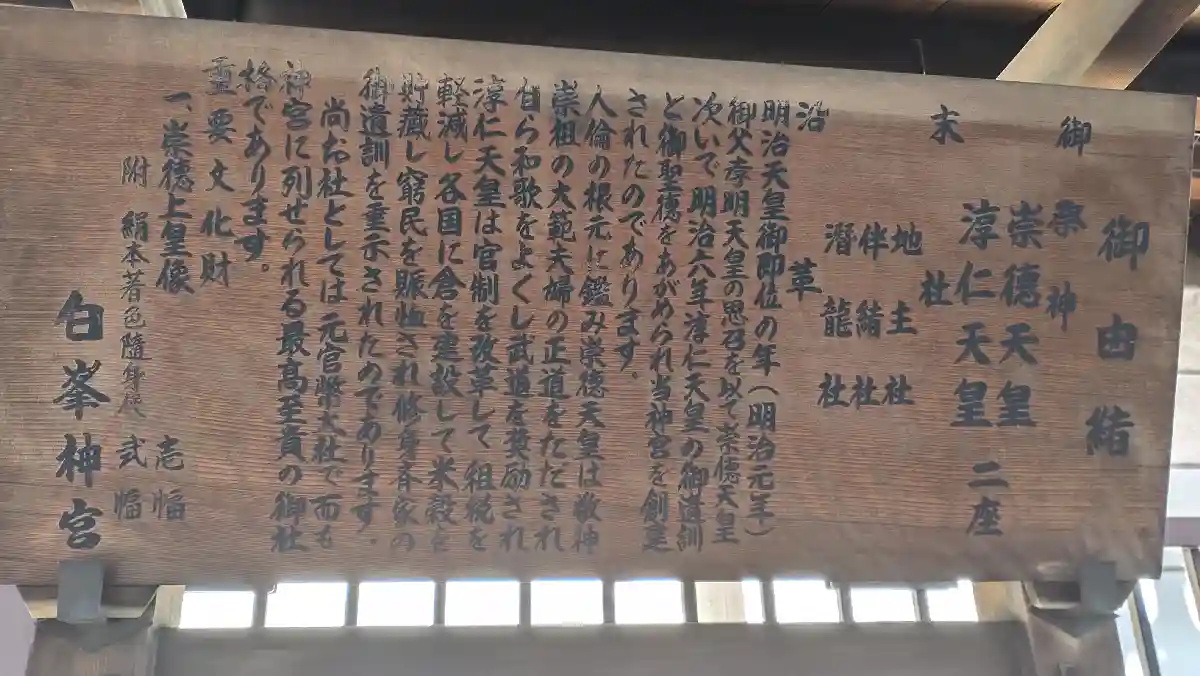 御由緒
御祭神
崇德天皇
淳仁天皇 二座
末社
地主社
伴緒社
潛龍社
沿革
明治天皇御即位の年(明治元年)
御父孝明天皇の思召を以て崇德天皇
次いで明治六年淳仁天皇の御遺訓
と御聖德をあがめられ当神宮を創建
されたのであります。
人倫の根元に鑑み崇德天皇は敬神
崇祖の大範夫婦の正道をただされ
自ら和歌をよくし武道を奨励され
淳仁天皇は官制を改革して租税を
軽減し各国に倉を建設して米穀を
貯藏し窮民を賑恤され修身斉家の
御遺訓を垂示されたのであります。
尚お社としては元官幣大社で而も
神宮に列せられる最高至貴の御社
格であります。
重要文化財
一、崇德上皇像 壱幅
附 絹本著色隨身像 弐幅
白峯神宮